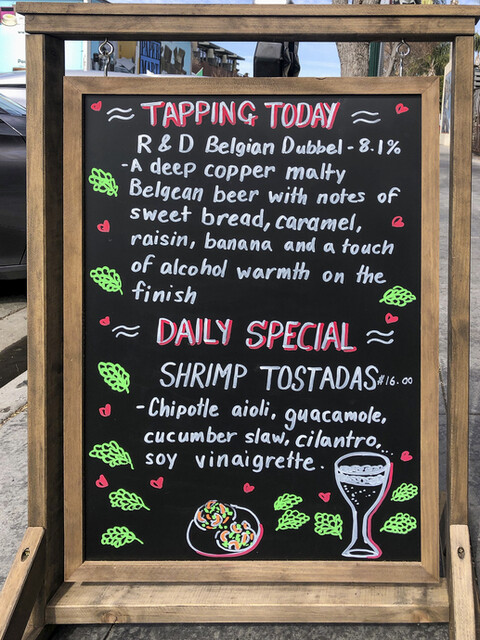 PAPER
TAPPING TODAY
R & D Belgian Dubbel - 8.1%
- A deep copper malty
Belgean beer with notes of
sweet bread, caramel,
raisin, banana and a touch
of alcohol warmth on the
finish
DAILY SPECIAL
SHRIMP TOSTADAS $16.00
- Chipotle aioli, guacamole,
cucumber slaw, cilantro,
soy vinaigrette.